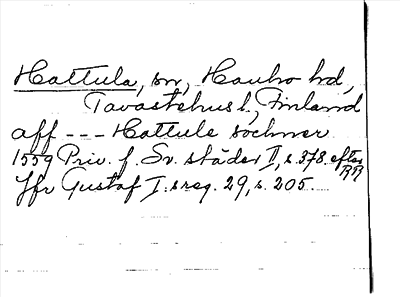 Hattula, sn, Hauho hd,
Tavastehus l., Finland
aff --- Hattule sochner
1559 Priv. f. Sv. städer II, s. 378. efter RR
Jfr Gustaf I:s reg. 29, s. 205.